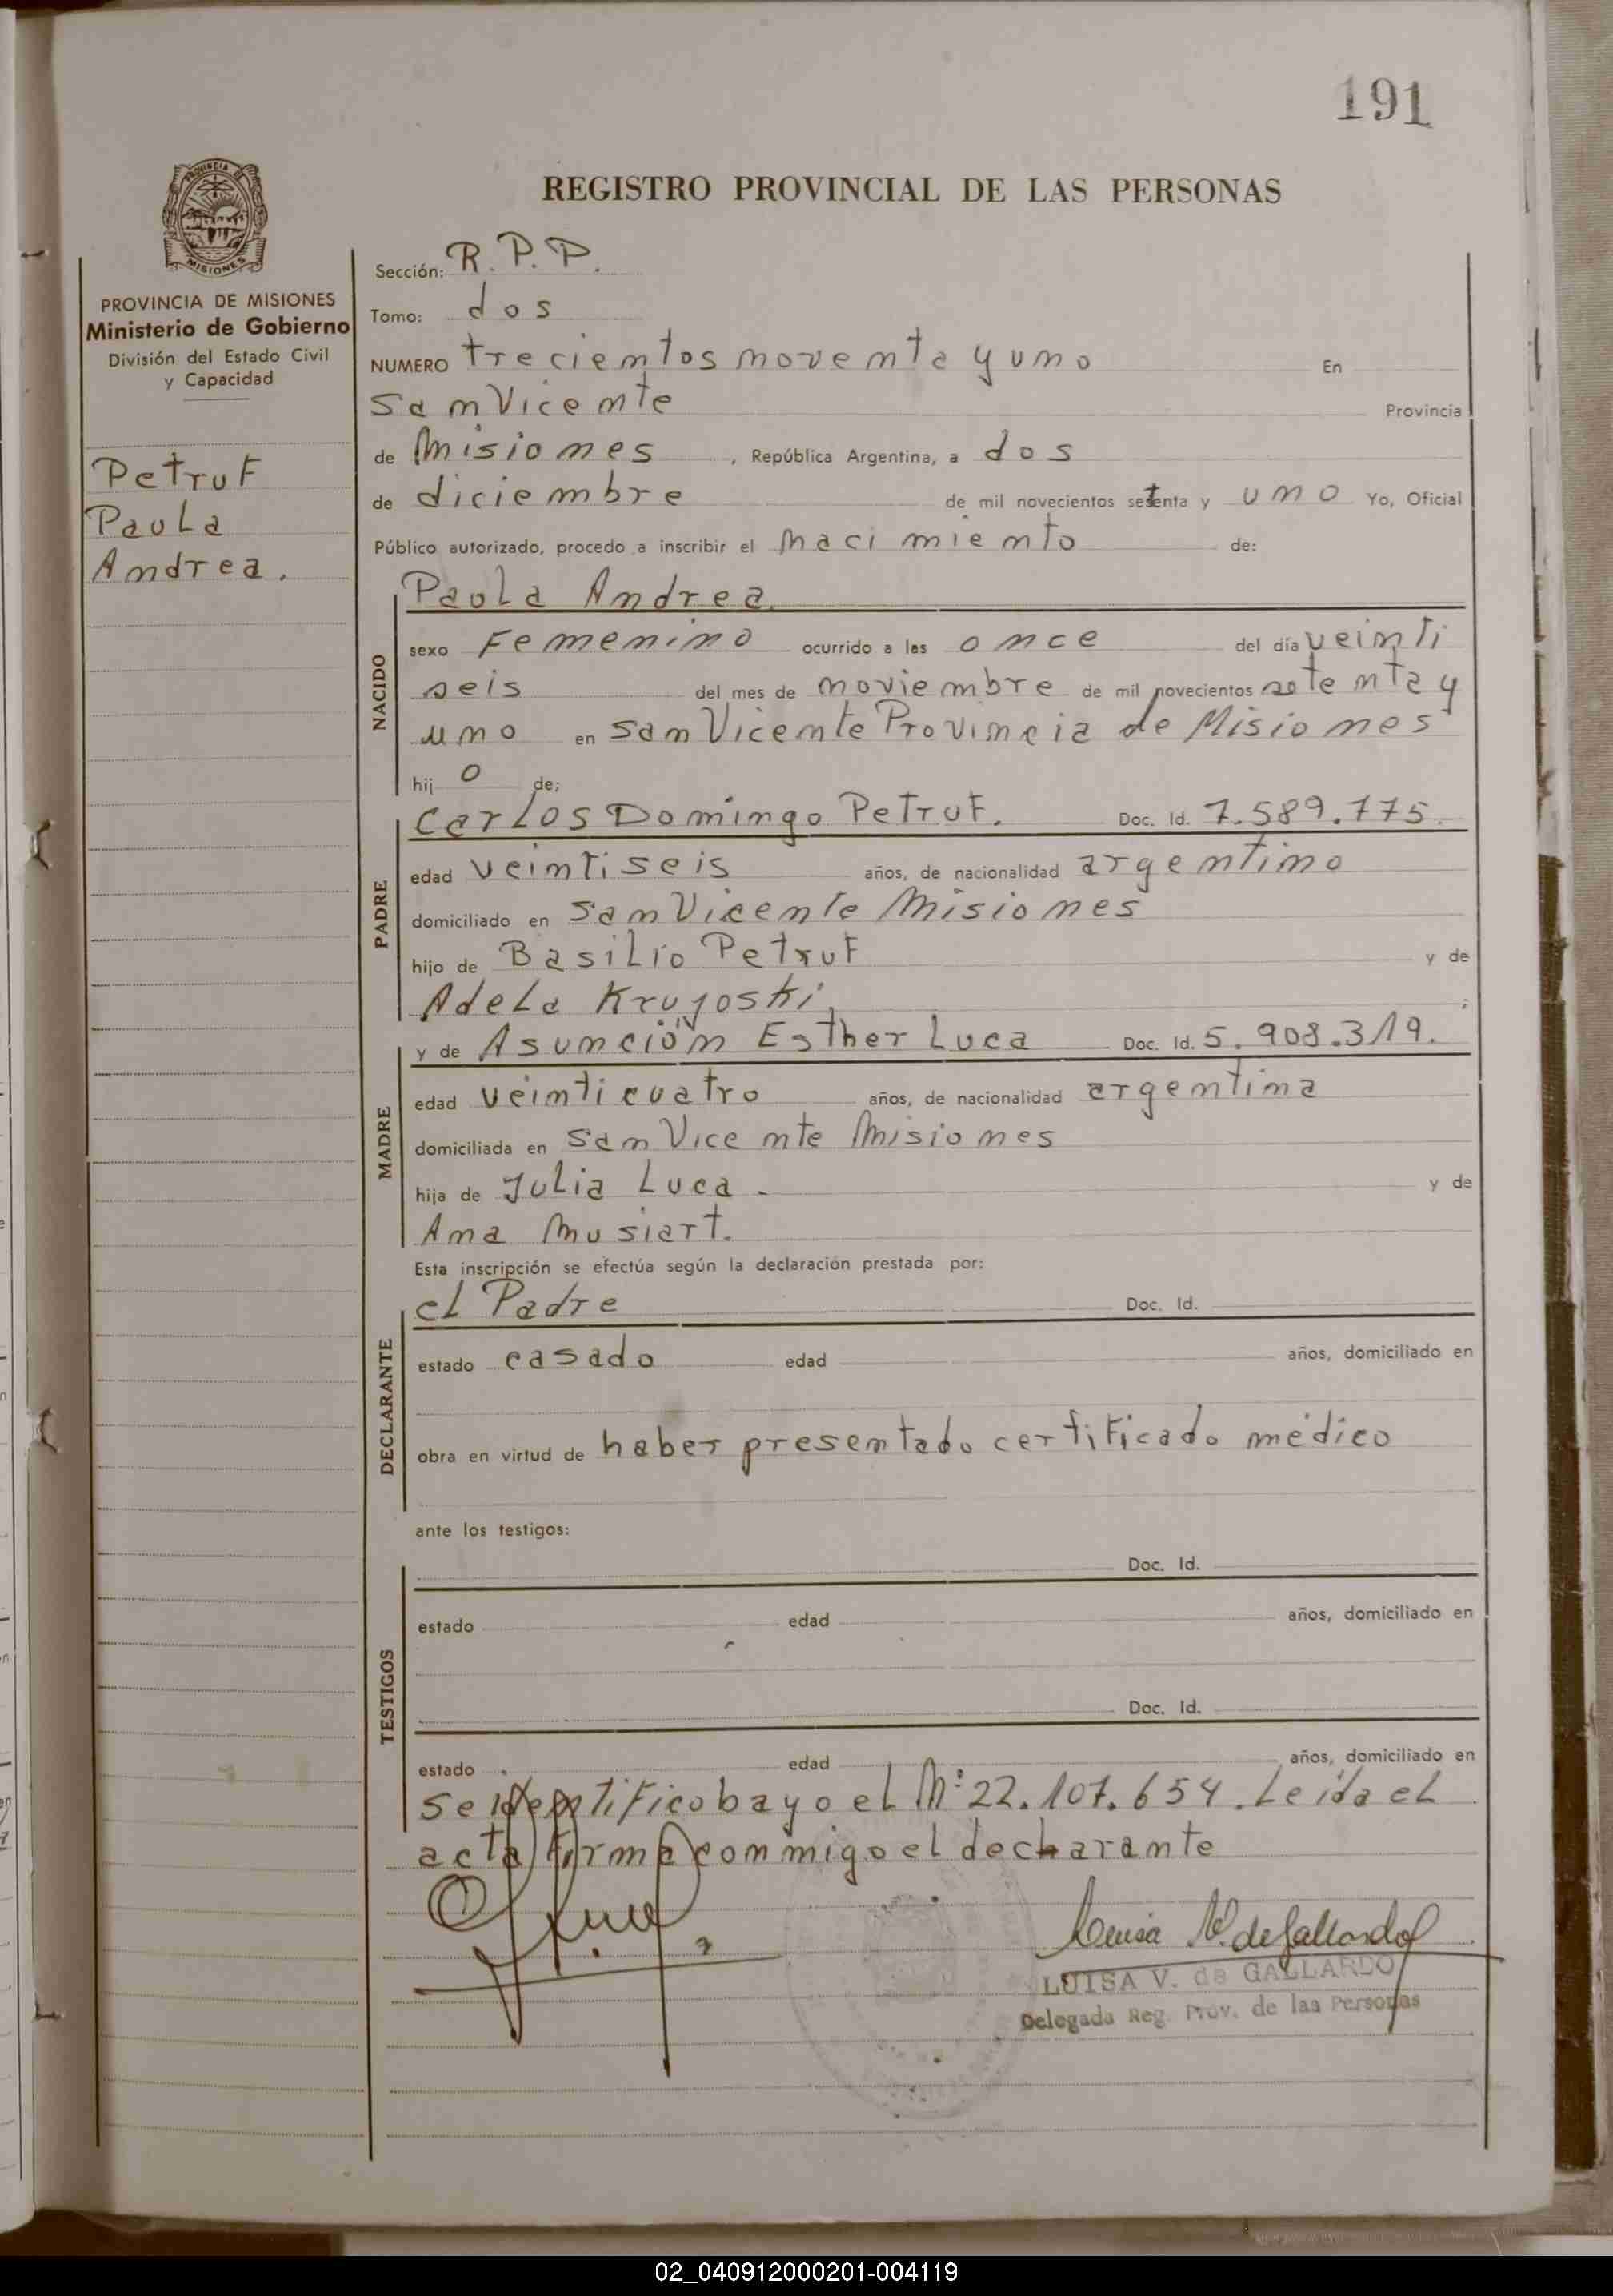 191
REGISTRO PROVINCIAL DE LAS PERSONAS
PROVINCIA DE MISIONES
Ministerio de Gobierno
División del Estado Civil
y Capacidad
Petruf
Paula
Andrea.
Sección: R. P. P.
Tomo: dos
NUMERO trecientos noventa y uno En
San Vicente Provincia
de Misiones, República Argentina, a dos
de diciembre de mil novecientos setenta y uno Yo, Oficial
Público autorizado, procedo a inscribir el nacimiento de:
NACIDO
Paula Andrea
sexo Femenino ocurrido a las once del día veinti
seis del mes de noviembre de mil novecientos setenta y
uno en San Vicente Provincia de Misiones
hij o de;
PADRE
Carlos Domingo Petruf. Doc. Id. 7.589.775.
edad veintiseis años, de nacionalidad argentino
domiciliado en San Vicente Misiones
hijo de Basilio Petruf y de
Adela Krujoski ;
MADRE
y de Asunción Esther Luca Doc. Id. 5.908.319.
edad veinticuatro años, de nacionalidad argentina
domiciliada en San Vicente Misiones
hija de Julia Luca - y de
Ana Musiart.
Esta inscripción se efectúa según la declaración prestada por:
DECLARANTE
el Padre Doc. Id.
estado casado edad años, domiciliado en
obra en virtud de haber presentado certificado médico
ante los testigos:
TESTIGOS
Doc. Id.
estado edad años, domiciliado en
Doc. Id.
estado edad años, domiciliado en
se identifico bayo el Nº 22.107.654. Leída el
acta firma conmigo el decharante
Luisa V. de Gallardo
LUISA V. de GALLARDO
Delegada Reg. Prov. de las Personas
02_040912000201-004119